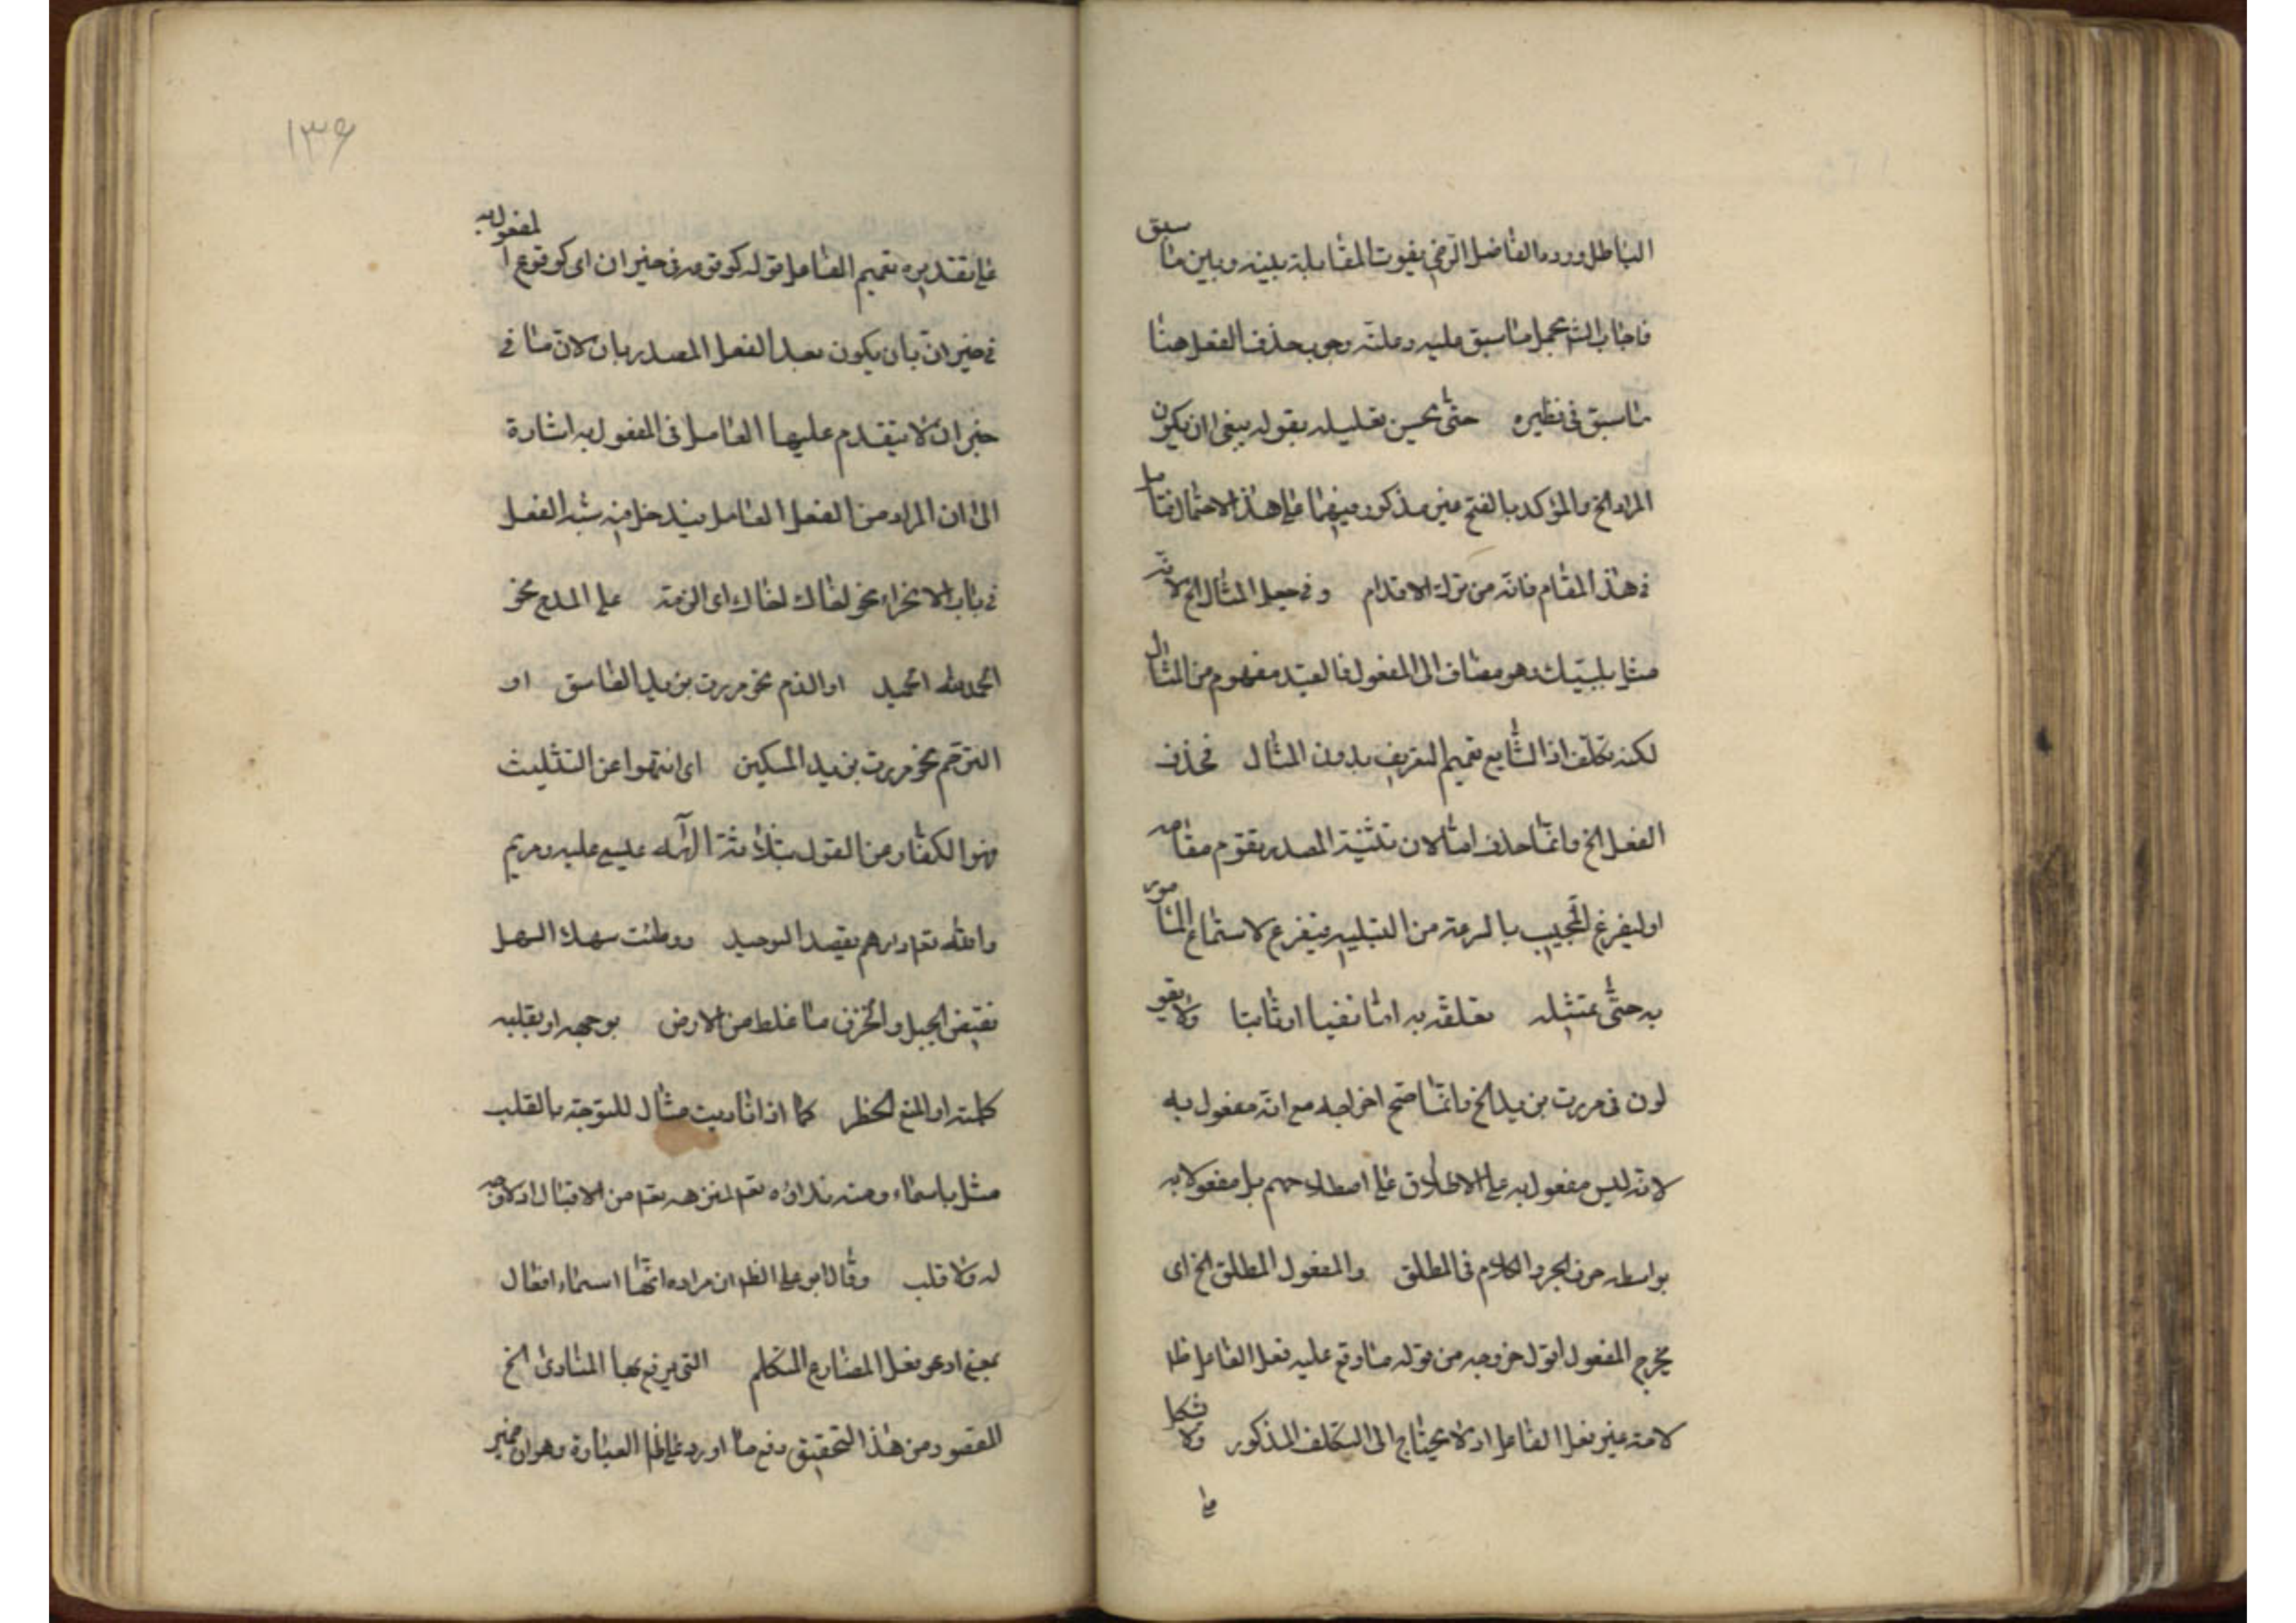 الباطل ورده الفاضل الرضي بفوت المقابلة بينه وبين ما سبق
فاجاب الش بحمل ما سبق عليه وعلته وجوب حذف الفعل هنا
ما سبق في نظيره حتى يحسن تعليله بقوله ينبغي ان يكون
المراد الخ والمؤكد بالفتح غير مذكور فيهما على هذا الاحتمال فتامل
في هذا المقام فانه من مزلة الاقدام وفي جعل المثال الخ لانه
مثل بلبيك وهو مضاف الى المفعول فالقيد مفهوم من المثال
لكنه تكلف اذ الشايع تعميم التعريف بدون المثال فحذف
الفعل الخ وانما حذف امثالان تثنية المصدر يقوم مقامه
او ليفرغ المجيب بالسرعة من التلبيه فيفرع لاستماع المامور
به حتى يمتثله تعلقه به اما نفيا او ثابتا ولا يقو
لون في مررت بزيد الخ وانما صح اخراجه مع انه مفعول به
لانه ليس مفعول به على الاطلاق على اصطلاحهم بل مفعولا به
بواسطه حرف الجر والكلام في المطلق والمفعول المطلق الخ اى
يخرج المفعول اقول خروجه من قوله ما وقع عليه فعل الفاعل ظا
لانه عين فعل الفاعل اذ لا يحتاج الى التكلف المذكور ولا شكل
على
١٣۶
على تقديره تعميم الفاعل قوله كوقوعه في حيز ان اى كوقوع المفعول به
في حيز ان بان يكون بعد الفعل المصدر بان لان ما في
حيز ان لا يتقدم عليها العامل في المفعول به اشارة
الى ان المراد من الفعل العامل فيدخل فيه شبه الفعل
في باب الاغراء نحو اخاك اخاك اى الزمه على المدح نحو
الحمد لله الحميد او الذم نحو مررت بزيد الفاسق او
الترحم نحو مررت بزيد المسكين اى انتهوا عن التثليث
نهوا الكفار من القول بثلاثة الآله عيسى عليه ومريم
والله تعم وامرهم بقصد التوحيد ووطئت سهلا السهل
نقيض الجبل والحزن ما غلظ من الارض بوجهه او بقلبه
كلمة او لمنع الحظر كما اذا ناديت مثال للتوجه بالقلب
مثل يا سماء ومنه نداؤه تعم لتنزهه تعم من الاقبال اذ لا وجه
له ولا قلب وقال ابو على الظ ان مراده انها اسماء افعال
بمعنى ادعو بفعل المضارع المتكلم التي يرفع بها المنادى الخ
المقصود من هذا التحقيق دفع ما اورد على ظا العبارة وهو ان ضمير